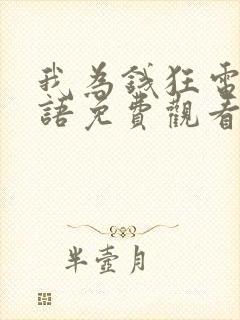 我為錢狂電
語免費觀看
半壺月